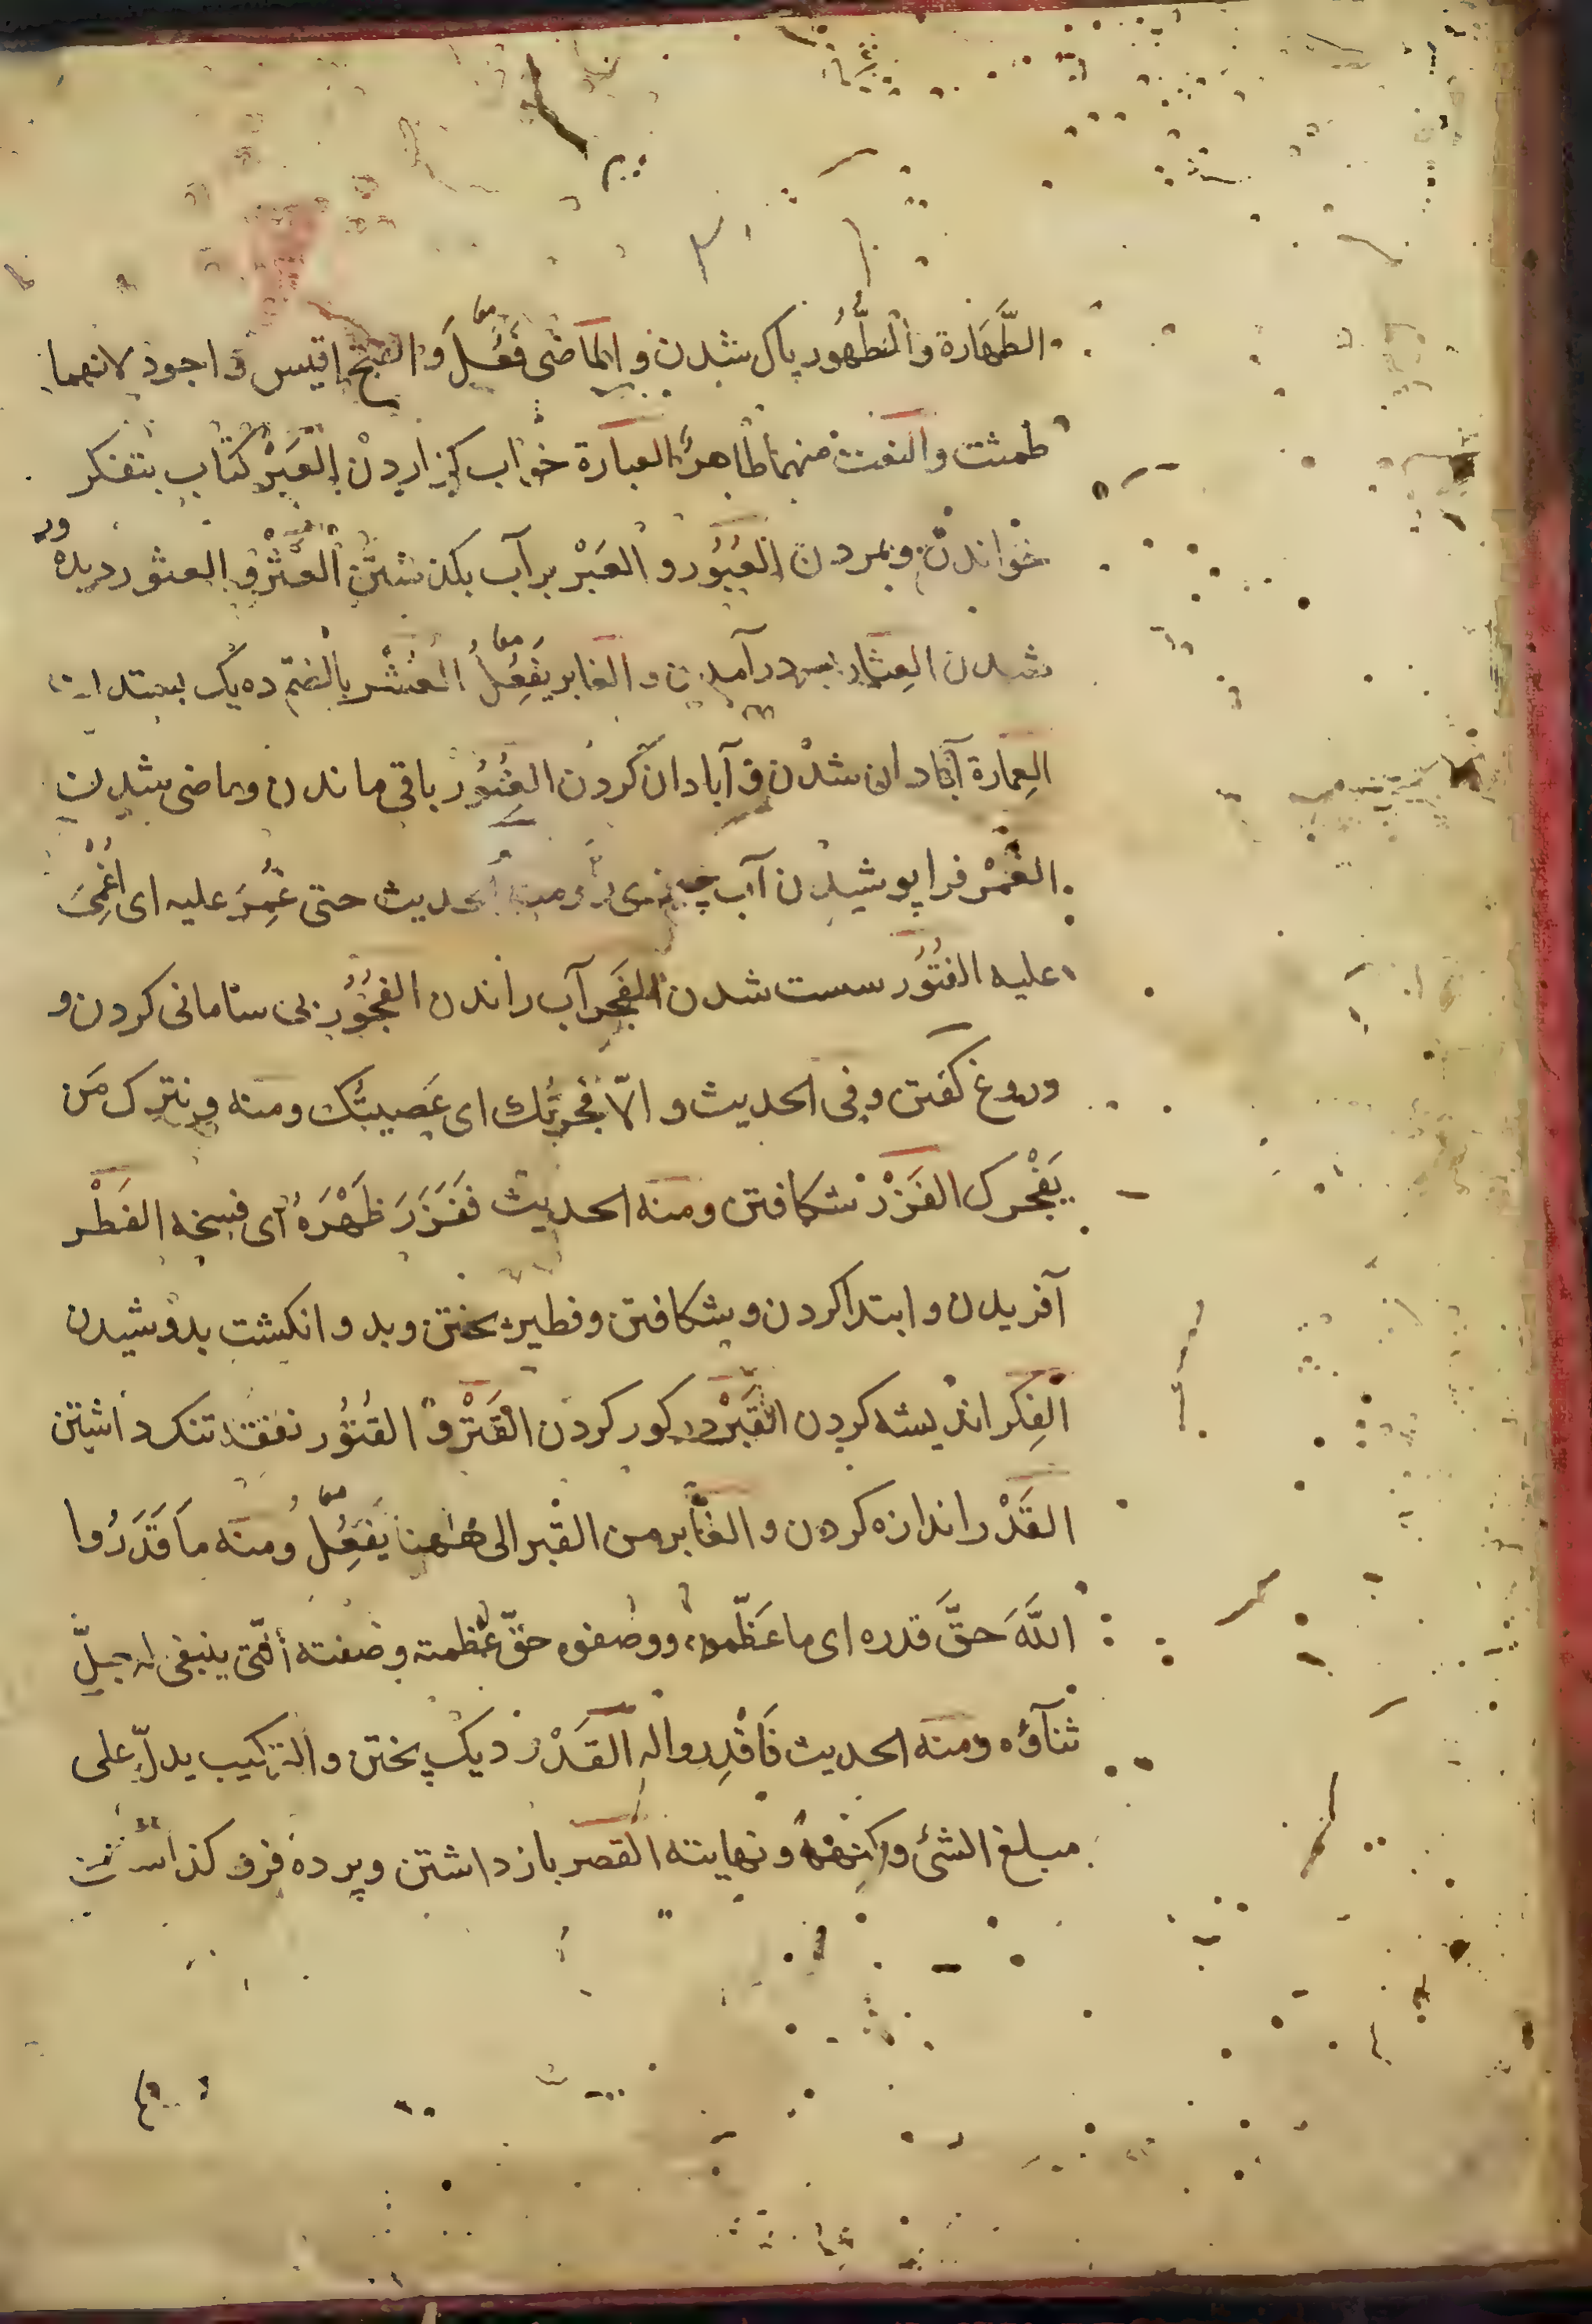 الطَّهَارة والطُّهُور پاک شدن والماضی فَعُلَ والفتح اقیس واجود لانهما
طمثت والنعت منهما طاهر العبارة خواب گزاردن العَبْر کتاب بتفکر
خواندن وبمردن العُبُور والعَبْر بر آب بگذشتن العَثْر والعثور دیده ور
شدن العِثار بسر درآمدن والغابر یَفعُِل معا العُشْر بالضم ده یک بستدن
العِمارة آبادان شدن وآبادان کردن الغُبُور باقی ماندن وماضی شدن
الغَمْر فرا پوشیدن آب چیزی را ومنه الحدیث حتی غُمِرَ علیه ای اُغْمِیَ
علیه الفتُور سست شدن الفَجْر آب راندن الفُجُور بی سامانی کردن و
دروغ گفتن وفی الحدیث والّا فجرتُک ای عَصیتُک ومنه ونترک مَن
یَفْجُرک الفَزْر شکافتن ومنه الحدیث فَفَزَرَ ظَهْرَهُ ای فسخه الفَطْر
آفریدن وابتدا کردن وشکافتن وفطیر پختن وبدو انگشت بدوشیدن
الفِکر اندیشه کردن القَبْر در گور کردن القَتْر و القُتُور نفقه تنگ داشتن
القَدْر اندازه کردن والغابر من القبر الی هاهنا یَفعُِل معا ومنه ما قَدَرُوا
اللَّهَ حقَّ قدره ای ما عَظّموه ووصفوه حقّ عظمته وصفته التی ینبغی له جلّ
ثناؤه ومنه الحدیث فَاقْدِروا له القَدْر دیگ پختن والترکیب یدلّ علی
مبلغ الشئ وکنهه ونهایته القصر باز داشتن وپرده فرو گذاشتن